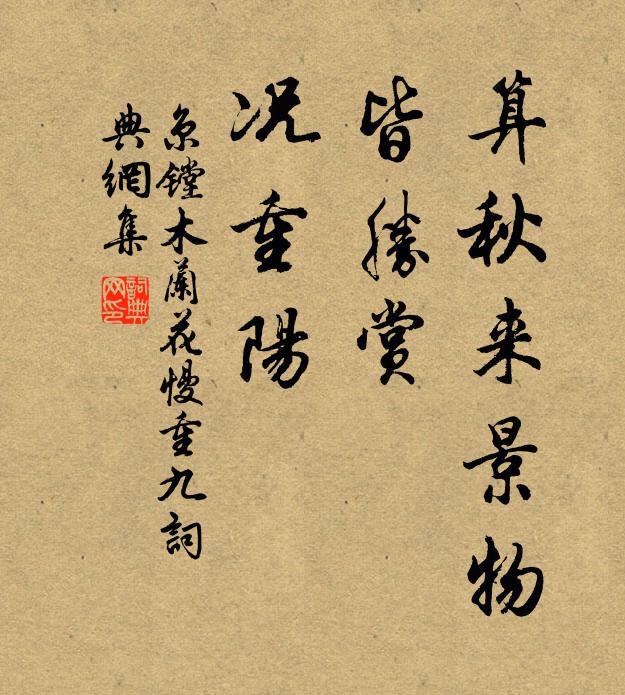 算秋来景物
皆勝赏
况重陽
京镗木蘭花慢重九詞
典網集
詞典
网印